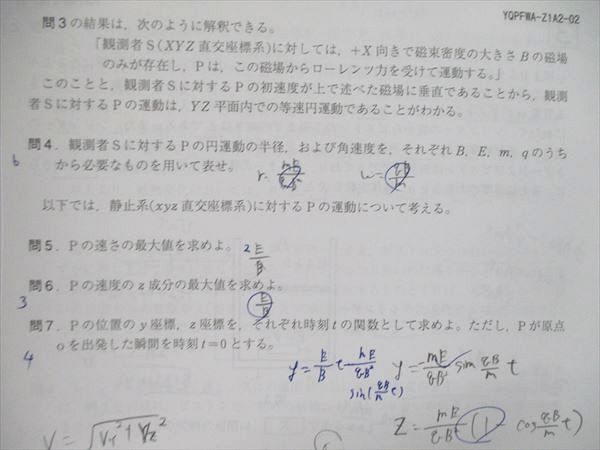 YQPFWA-Z1A2-02
問3の結果は，次のように解釈できる。
「観測者S(XYZ直交座標系)に対しては，+X向きで磁束密度の大きさBの磁場
のみが存在し，Pは，この磁場からローレンツ力を受けて運動する。」
このことと，観測者Sに対するPの初速度が上で述べた磁場に垂直であることから，観測
者Sに対するPの運動は，YZ平面内での等速円運動であることがわかる。
問4．観測者Sに対するPの円運動の半径，および角速度を，それぞれB，E，m，qのうち
b
から必要なものを用いて表せ。 r = mE/qB² ω = qB/m
以下では，静止系(xyz直交座標系)に対するPの運動について考える。
問5．Pの速さの最大値を求めよ。 2E/B
問6．Pの速度のz成分の最大値を求めよ。
3 E/B
問7．Pの位置のy座標，z座標を，それぞれ時刻tの関数として求めよ。ただし，Pが原点
oを出発した瞬間を時刻t=0とする。
4
y = E/B t - mE/qB² sin(qB/m t) y = -mE/qB² sin qB/m t
V = √Vy²+Vz² Z = mE/qB² (1 - cos qB/m t)